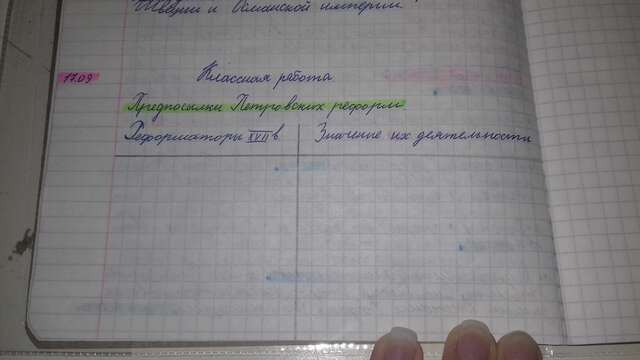 Швеции и Османской империи
17.09
Классная работа
Предпосылки Петровских реформ
Реформаторы XVII в
Значение их деятельности